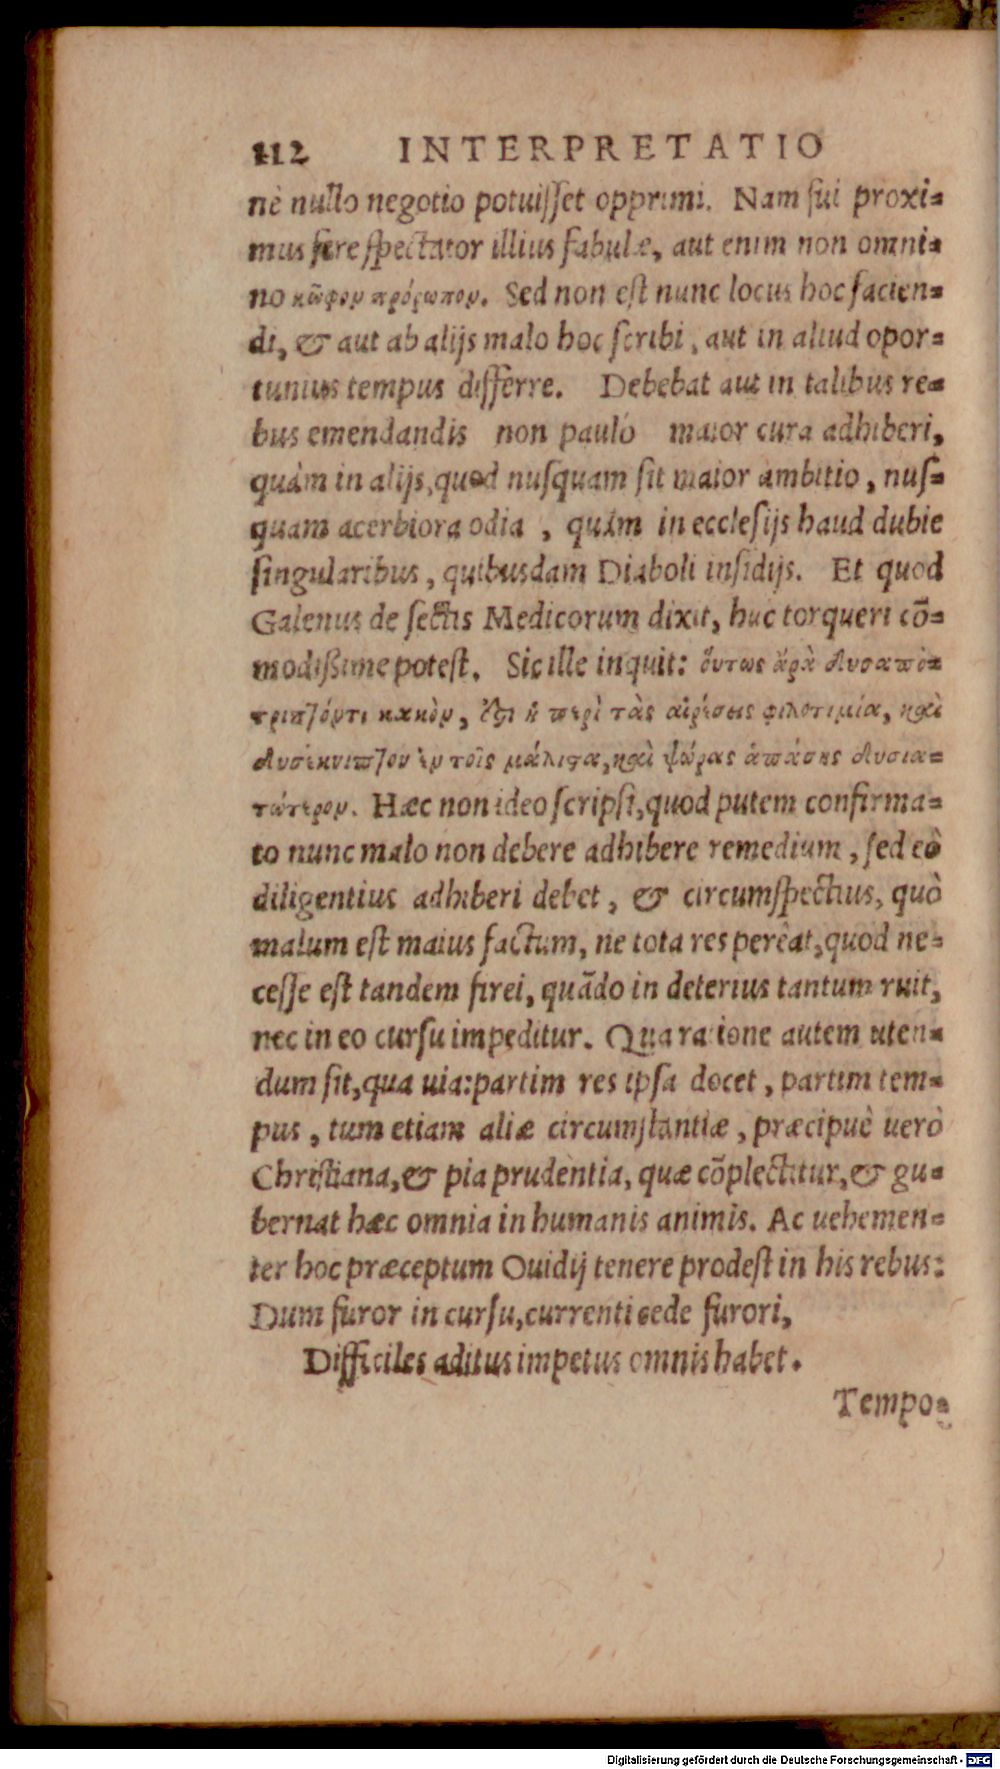 112 INTERPRETATIO
nè nullo negotio potuisset opprimi. Nam fui proxi=
mus fere spectator illius fabulæ, aut enim non omni=
no κωφον πρόσωπον. Sed non est nunc locus hoc facien=
di, & aut ab alijs malo hoc scribi, aut in aliud opor=
tunius tempus differre. Debebat aut in talibus re=
bus emendandis non pauló maior cura adhiberi,
quàm in alijs, quod nusquam sit maior ambitio, nus=
quam acerbiora odia, quàm in ecclesijs haud dubie
singularibus, quibusdam Diaboli insidijs. Et quod
Galenus de sectis Medicorum dixit, huc torqueri cō=
modißime potest. Sic ille inquit: ὅυτως ἄρὰ δυσαπό=
τριπτόντι κακὸν, ἔστι ἡ περὶ τὰς αἱρέσεις φιλοτιμία, καὶ
δυσέκνιπτον ἐν τοῖς μάλιστα, καὶ ψώρας ἁπάσης δυσια=
τώτερον. Hæc non ideo scripsi, quod putem confirma=
to nunc malo non debere adhibere remedium, sed eò
diligentius adhiberi debet, & circumspectius, quò
malum est maius factum, ne tota res pereat, quod ne=
cesse est tandem firei, quādo in deterius tantum ruit,
nec in eo cursu impeditur. Qua ratione autem uten=
dum sit, qua uia: partim res ipsa docet, partim tem=
pus, tum etiam aliæ circumstantiæ, præcipuè uerò
Christiana, & pia prudentia, quæ cōplectitur, & gu=
bernat hæc omnia in humanis animis. Ac uehemen=
ter hoc præceptum Ouidij tenere prodest in his rebus:
Dum furor in cursu, currenti cede furori,
Difficiles aditus impetus omnis habet.
Tempo=
Digitalisierung gefördert durch die Deutsche Forschungsgemeinschaft - DFG